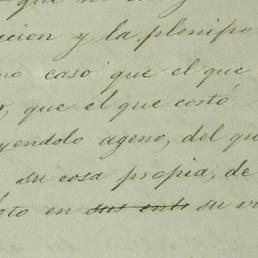 que no
icion y la plenipo
mo caso que el que
, que el que cortó
yendolo ageno, del qu
su cosa propia, de
oto en sus ents su vi